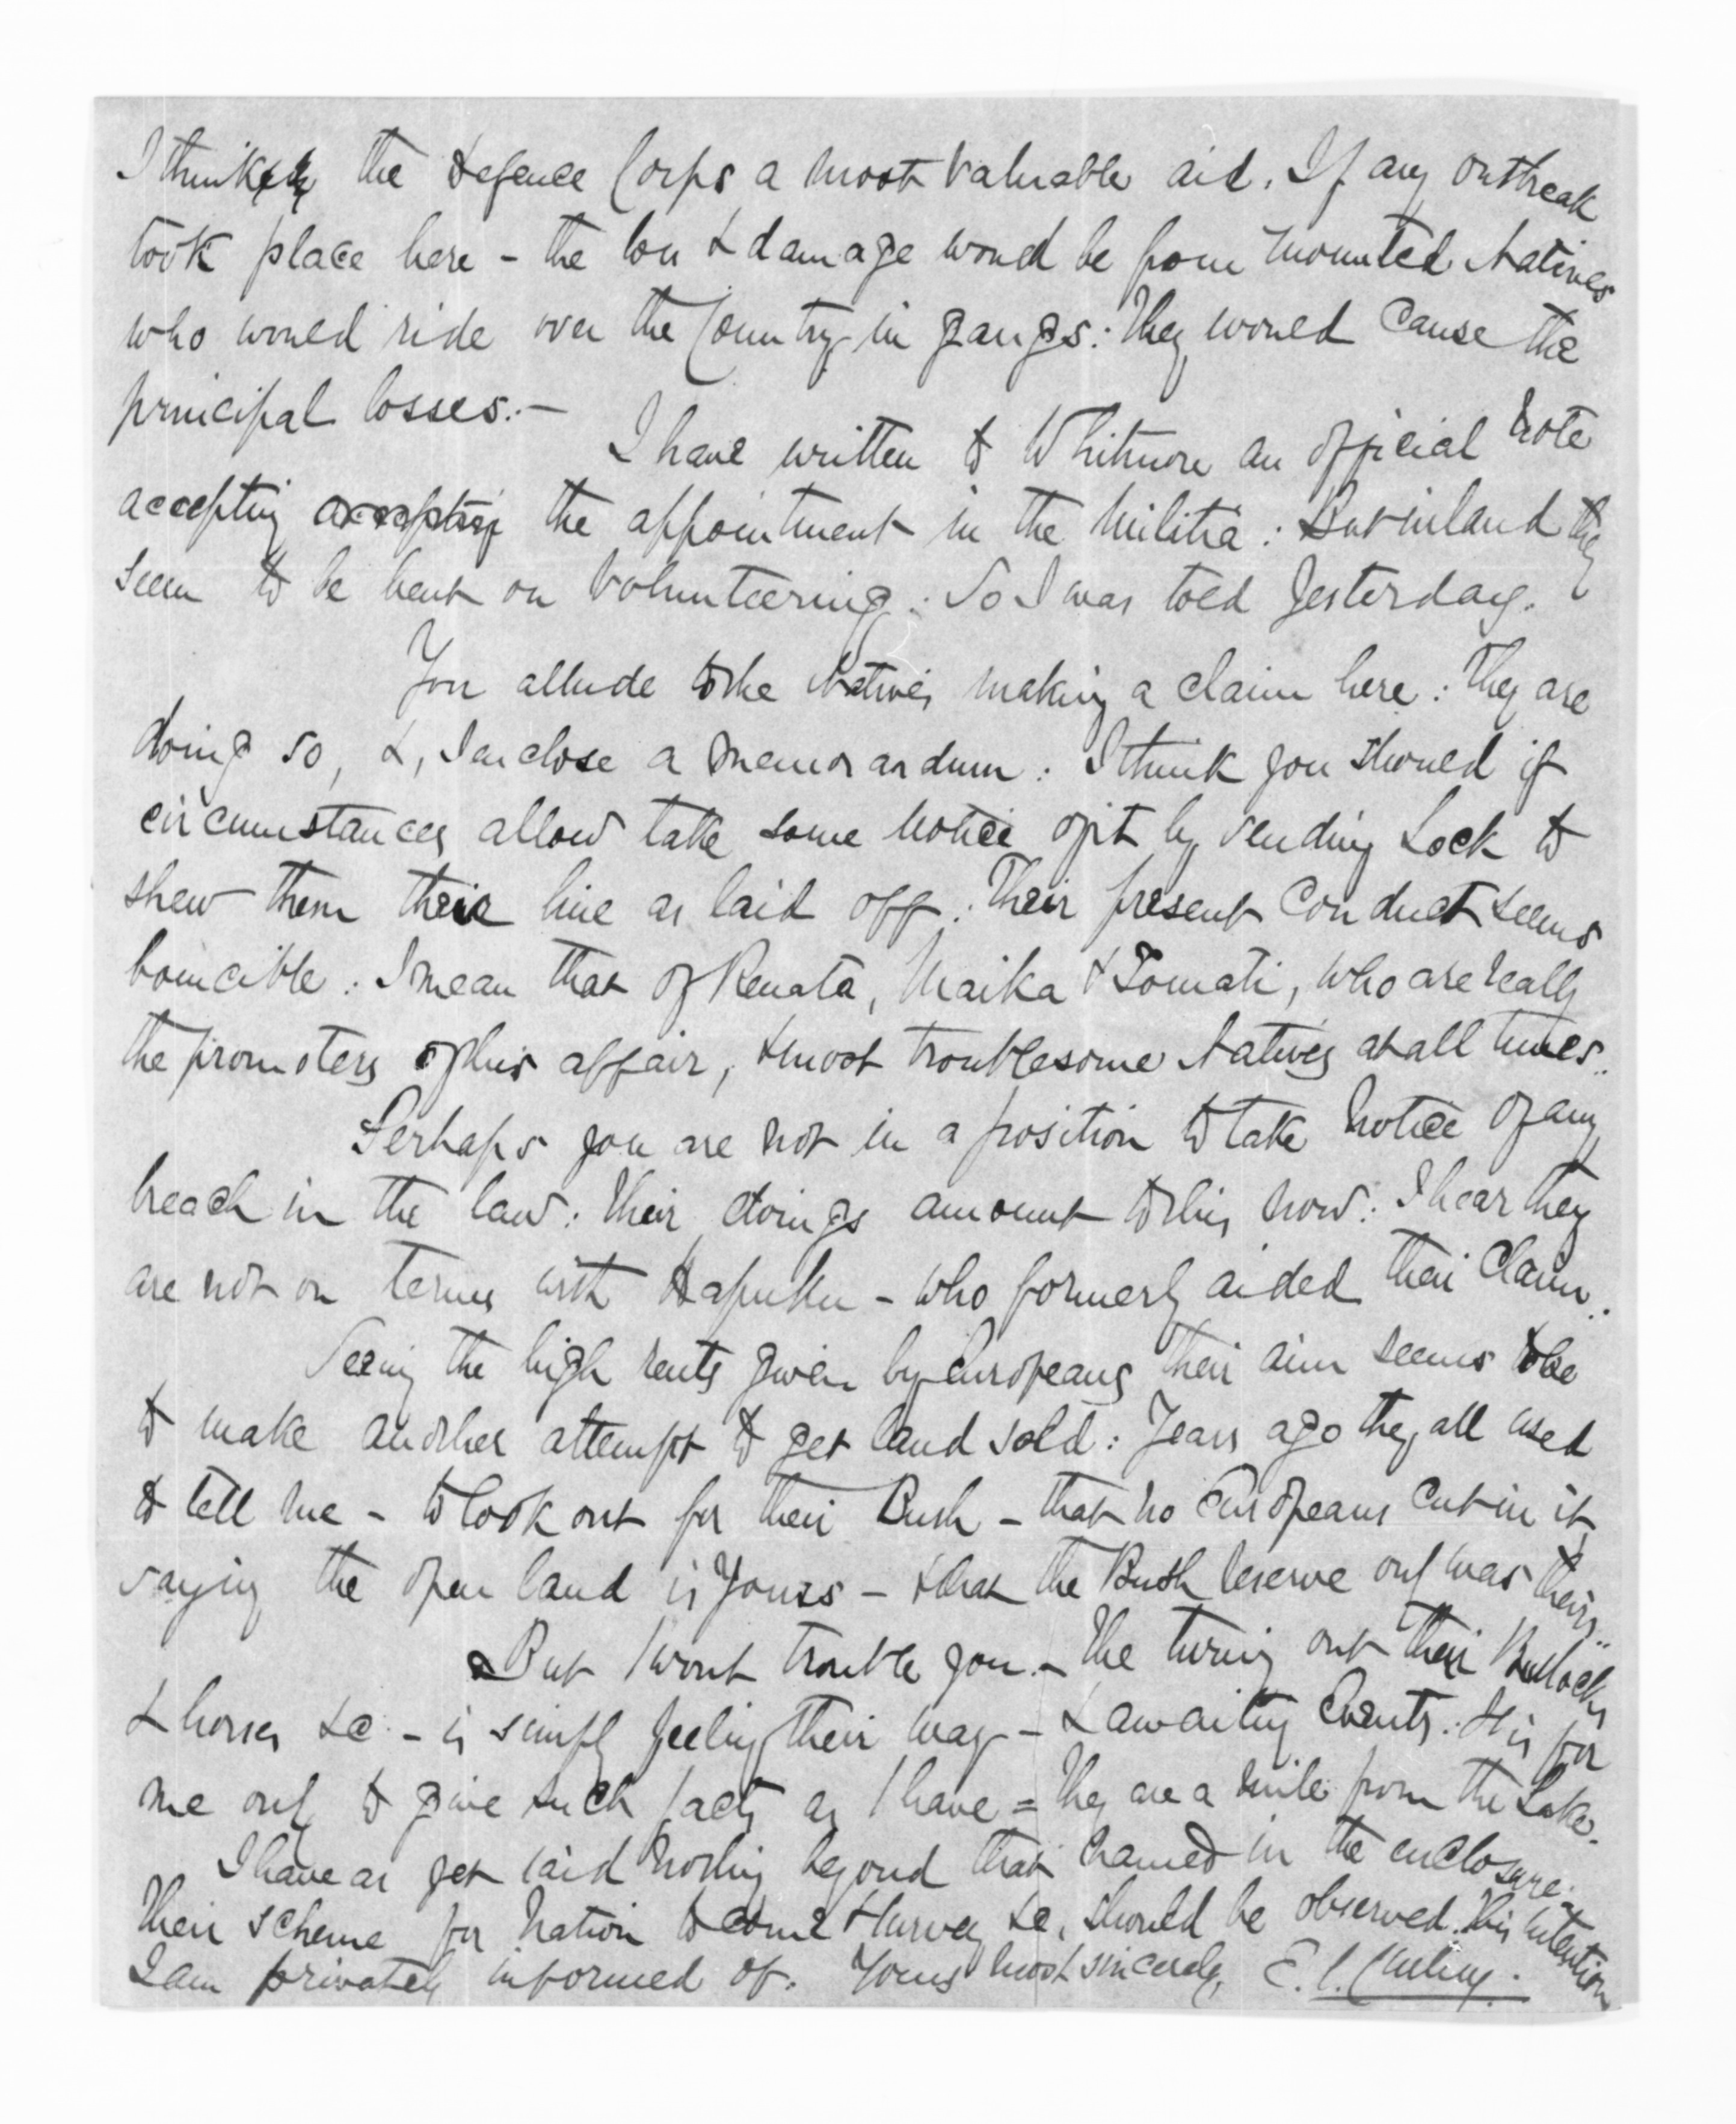 I think the Defence Corps a most valuable aid. If any outbreak
took place here - the loss & damage would be from mounted Natives
who would ride over the Country in gangs: They would cause the
principal losses.-
I have written to Whitmore an official note
accepting accepting the appointment in the Militia: But inland they
seem to be bent on Volunteering: So I was told yesterday.
You allude to the Natives making a claim here: They are
doing so, &, I enclose a memorandum: I think you should if
circumstances allow take some notice of it by sending Lock to
shew them their line as laid off. Their present Conduct seems
: I mean that of Renata, Maika & Tomati, who are really
the promoters of this affair, & most troublesome Natives at all times..
Perhaps you are not in a position to take notice of any
breach in the law: Their doings amount to this now: I hear they
are not on terms with Hapuku - who formerly aided their Claim.
Seeing the high rents given by Europeans their aim seems to be
to make another attempt to get land sold: Years ago they all used
to tell me - to look out for their Bush - that no Europeans cut in it,
saying the open land is yours - & that the Bush reserve only was theirs..
But I wont trouble you - The turning out their Bullocks
& horses &c - is simply feeling their way - & awaiting Events. It is for
me only to give such facts as I have = They are a mile from the Lake.
I have as yet said nothing beyond that named in the enclosure.
Their scheme for Nation to come & survey &c, should be observed. This intention
I am privately informed of. Yours most sincerely, E. S. Curling.